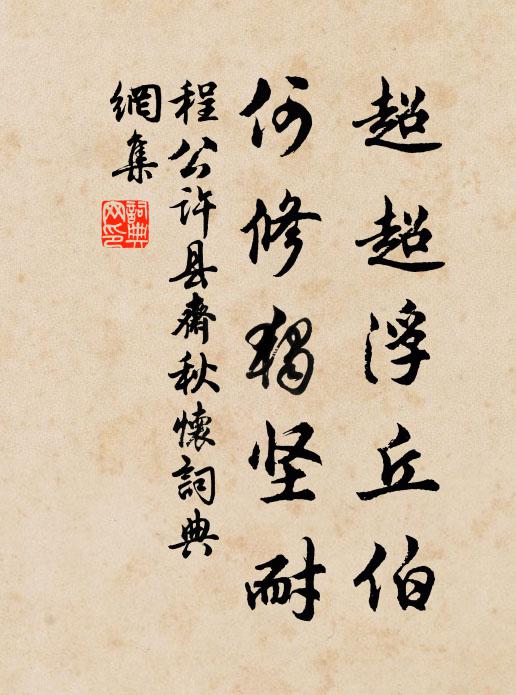 超超浮丘伯
何修独坚耐
程公许县齋秋懷詞典
網集
詞典
网印